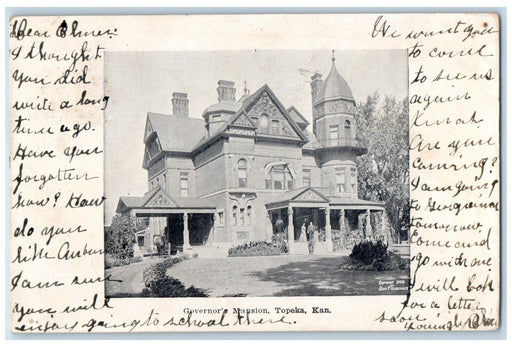 Dear Elmer:
I thought
you did
write a long
time ago.
Have you
forgotten
how? How
do you
like Auburn
I am sure
you will
enjoy going to school there.
We want you
to come
to see us
again
Are you
coming?
I am going
to
tomorrow.
Come and
go with me
I will look
for a letter
soon.
Governor's Mansion, Topeka, Kan.
Copyright 1905